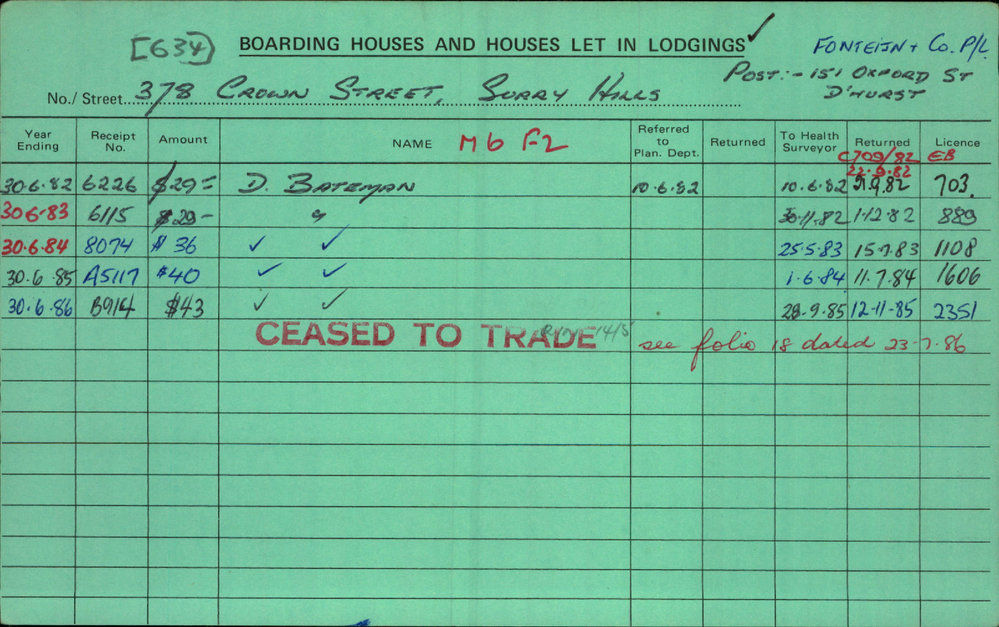 [634] BOARDING HOUSES AND HOUSES LET IN LODGINGS ✓ FONTEIJN + Co. P/L
POST:- 151 OXFORD ST
D'HURST
No./ Street 378 CROWN STREET, SURRY HILLS
Year Ending Receipt No. Amount NAME M 6 F-2 Referred to Plan. Dept. Returned To Health Surveyor Returned Licence
C709/82 EB
22.9.82
30.6.82 6226 $29= D. BATEMAN 10.6.82 10.6.82 21.9.82 703
30.6.83 6115 $29- " 30.11.82 1.12.82 889
30.6.84 8074 $36 ✓ ✓ 25.5.83 15.7.83 1108
30.6.85 A5117 $40 ✓ ✓ 1.6.84 11.7.84 1606
30.6.86 B914 $43 ✓ ✓ 28.9.85 12.11.85 2351
CEASED TO TRADE 14/5 see folio 18 dated 23-7-86